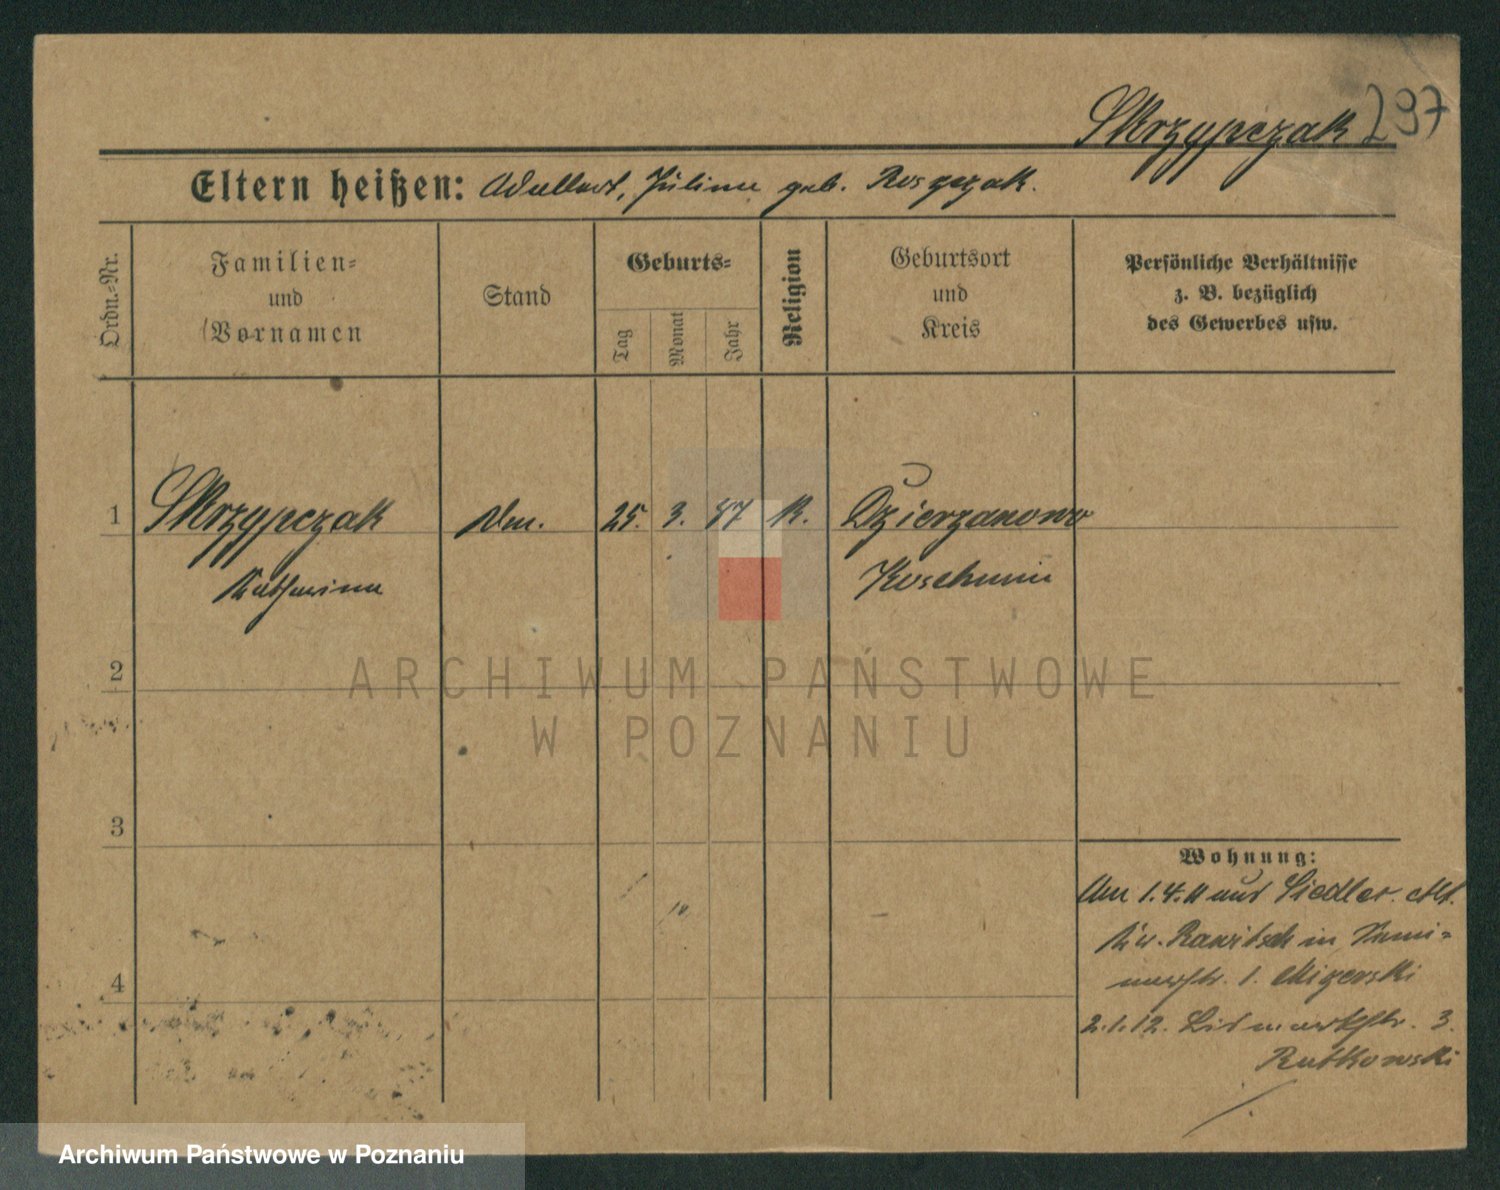 Skrzypczak 297
Eltern heißen: Adalbert, Juliane geb. Rosgczak.
Ordn.=Nr.
Familien=
und
Vornamen
Stand
Geburts=
Tag
Monat
Jahr
Religion
Geburtsort
und
Kreis
Persönliche Verhältnisse
z. B. bezüglich
des Gewerbes usw.
1 Skrzypczak 25. 3. 87 K. Dzierzanowo
Katharina Koschmin
2
3
4
Wohnung:
Am 1.4.11 aus Siedler
Rawitsch in
1. Migerski
2.1.12. Bismarckstr. 3.
Rutkowski
ARCHIWUM PAŃSTWOWE
W POZNANIU
Archiwum Państwowe w Poznaniu